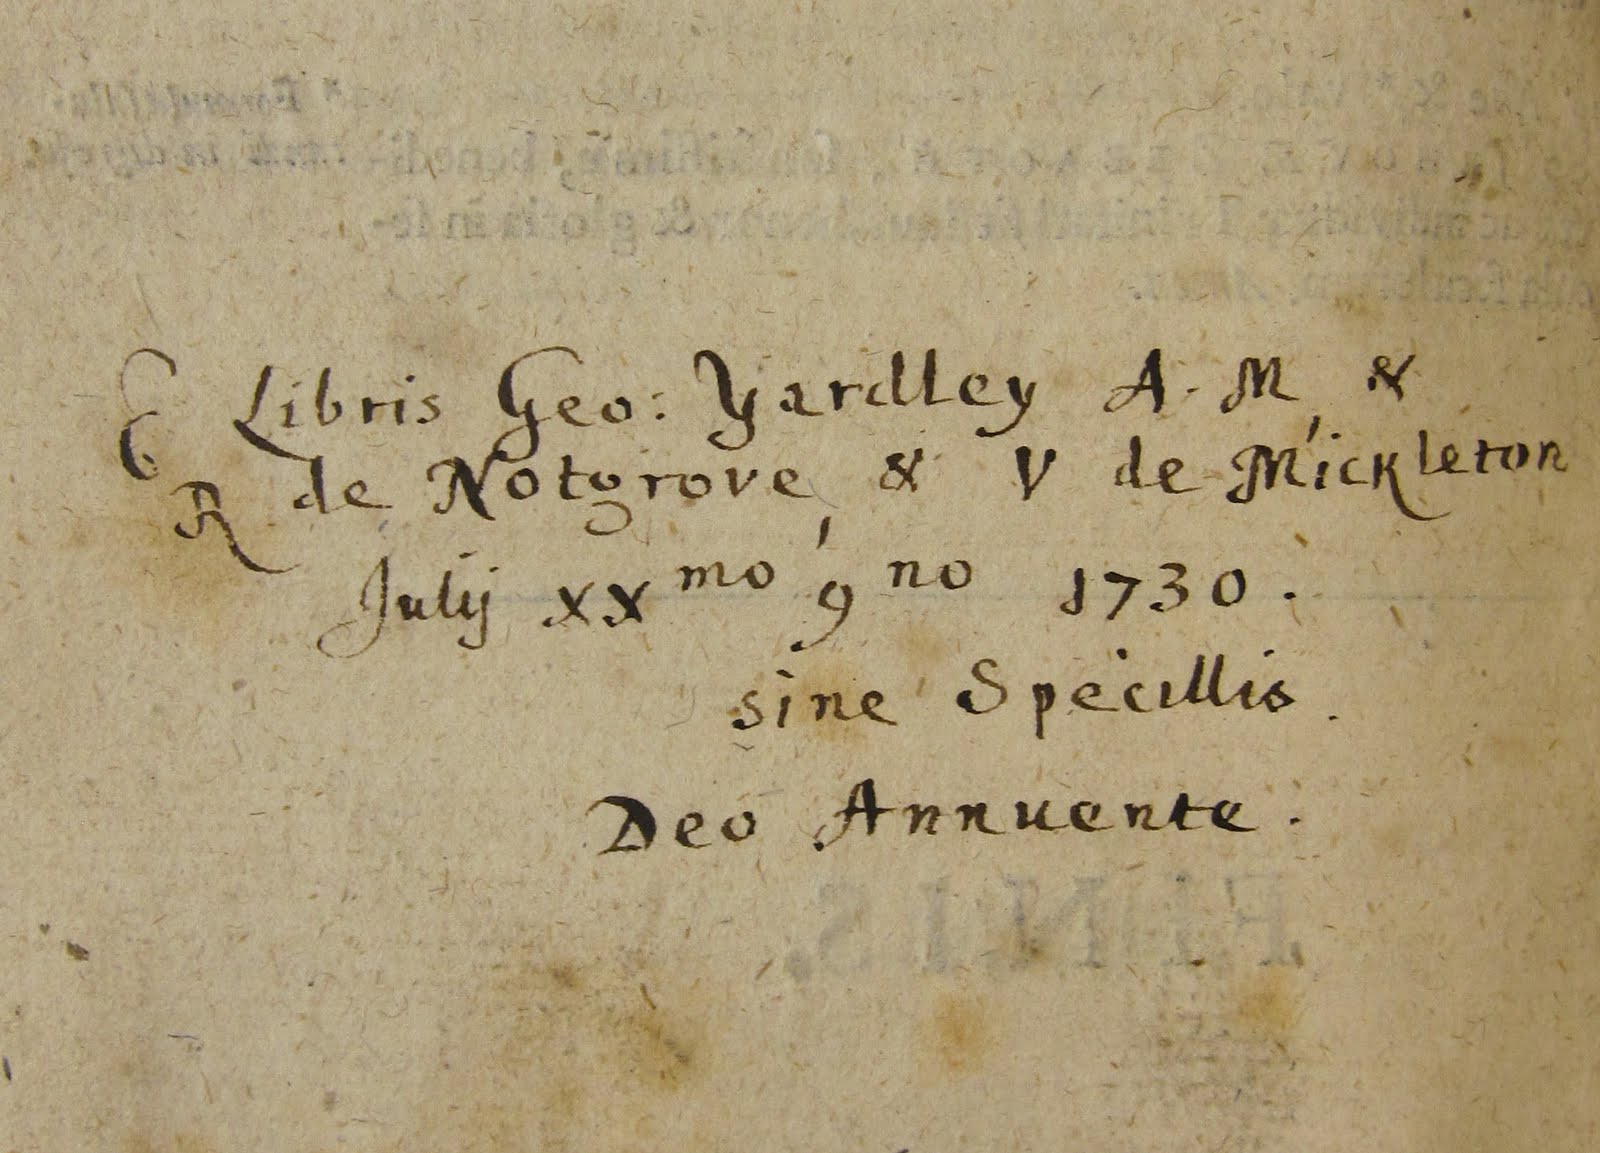 E Libris Geo: Yardley A. M, &
R de Notgrove, & V de Mickleton
Julij xx^mo 9^no 1730.
sine Specillis.
Deo Annuente.
FINIS.